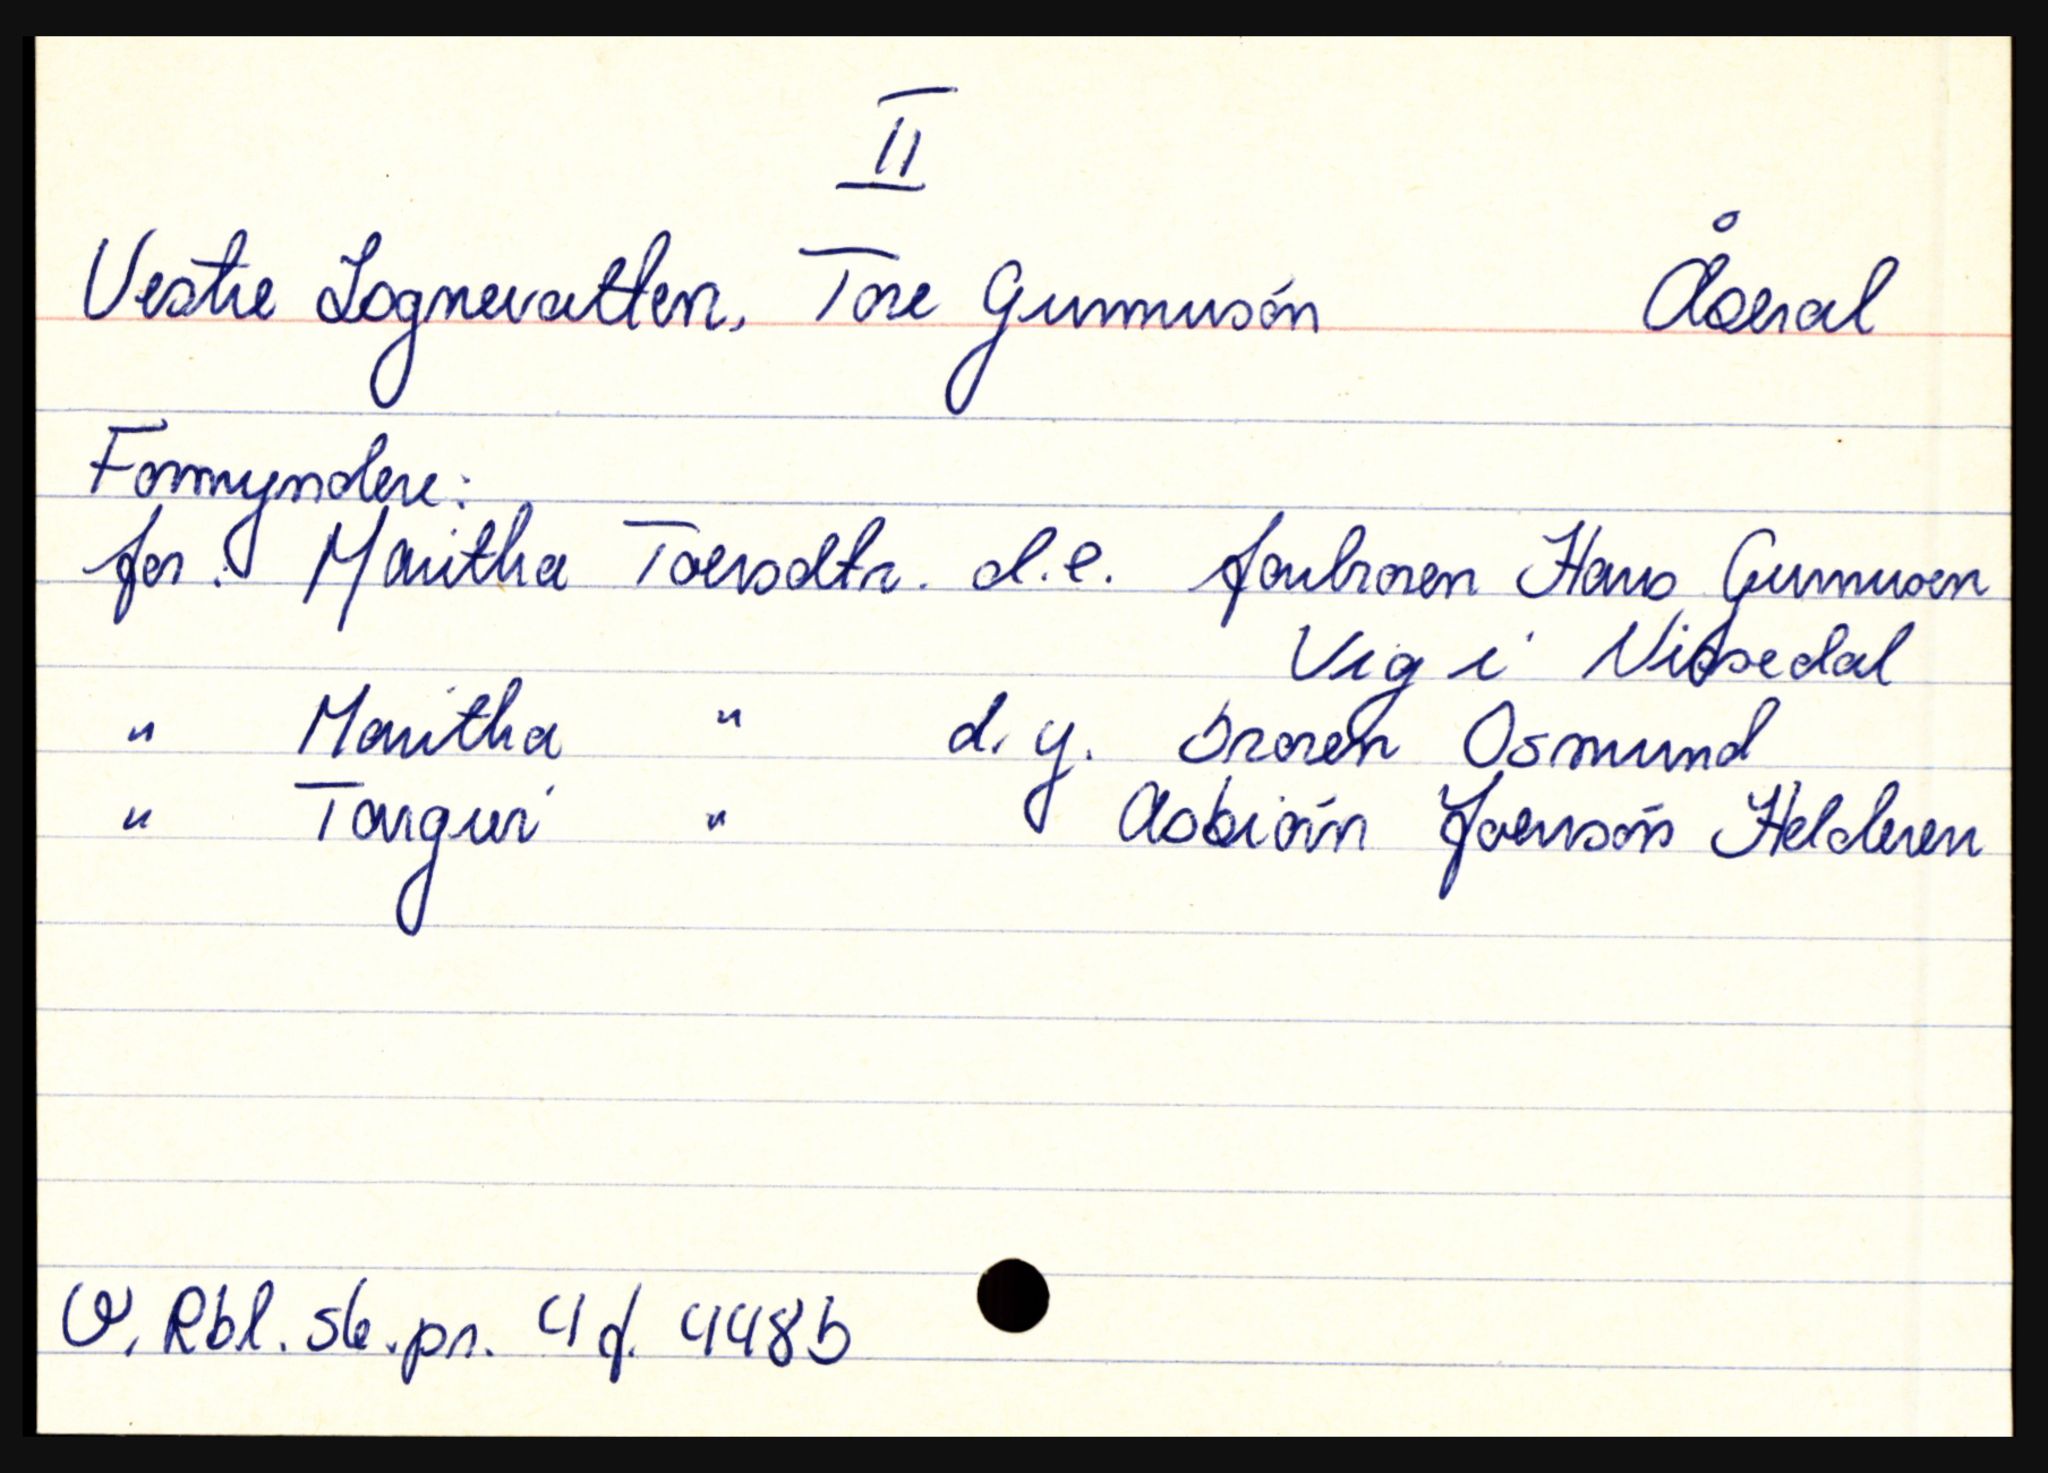 II
Vestre Lognevatten, Tore Gunnusøn Åseral
Formyndere:
for: Maritha Toersdtr. d.e. farbroren Hans Gunnusen
Vig i Nissedal
" Maritha " d.y. broren Osmund
" Torguri " Asbiørn Joensøn Helderen
V. Rbl. sk.pr. 4 f. 448b